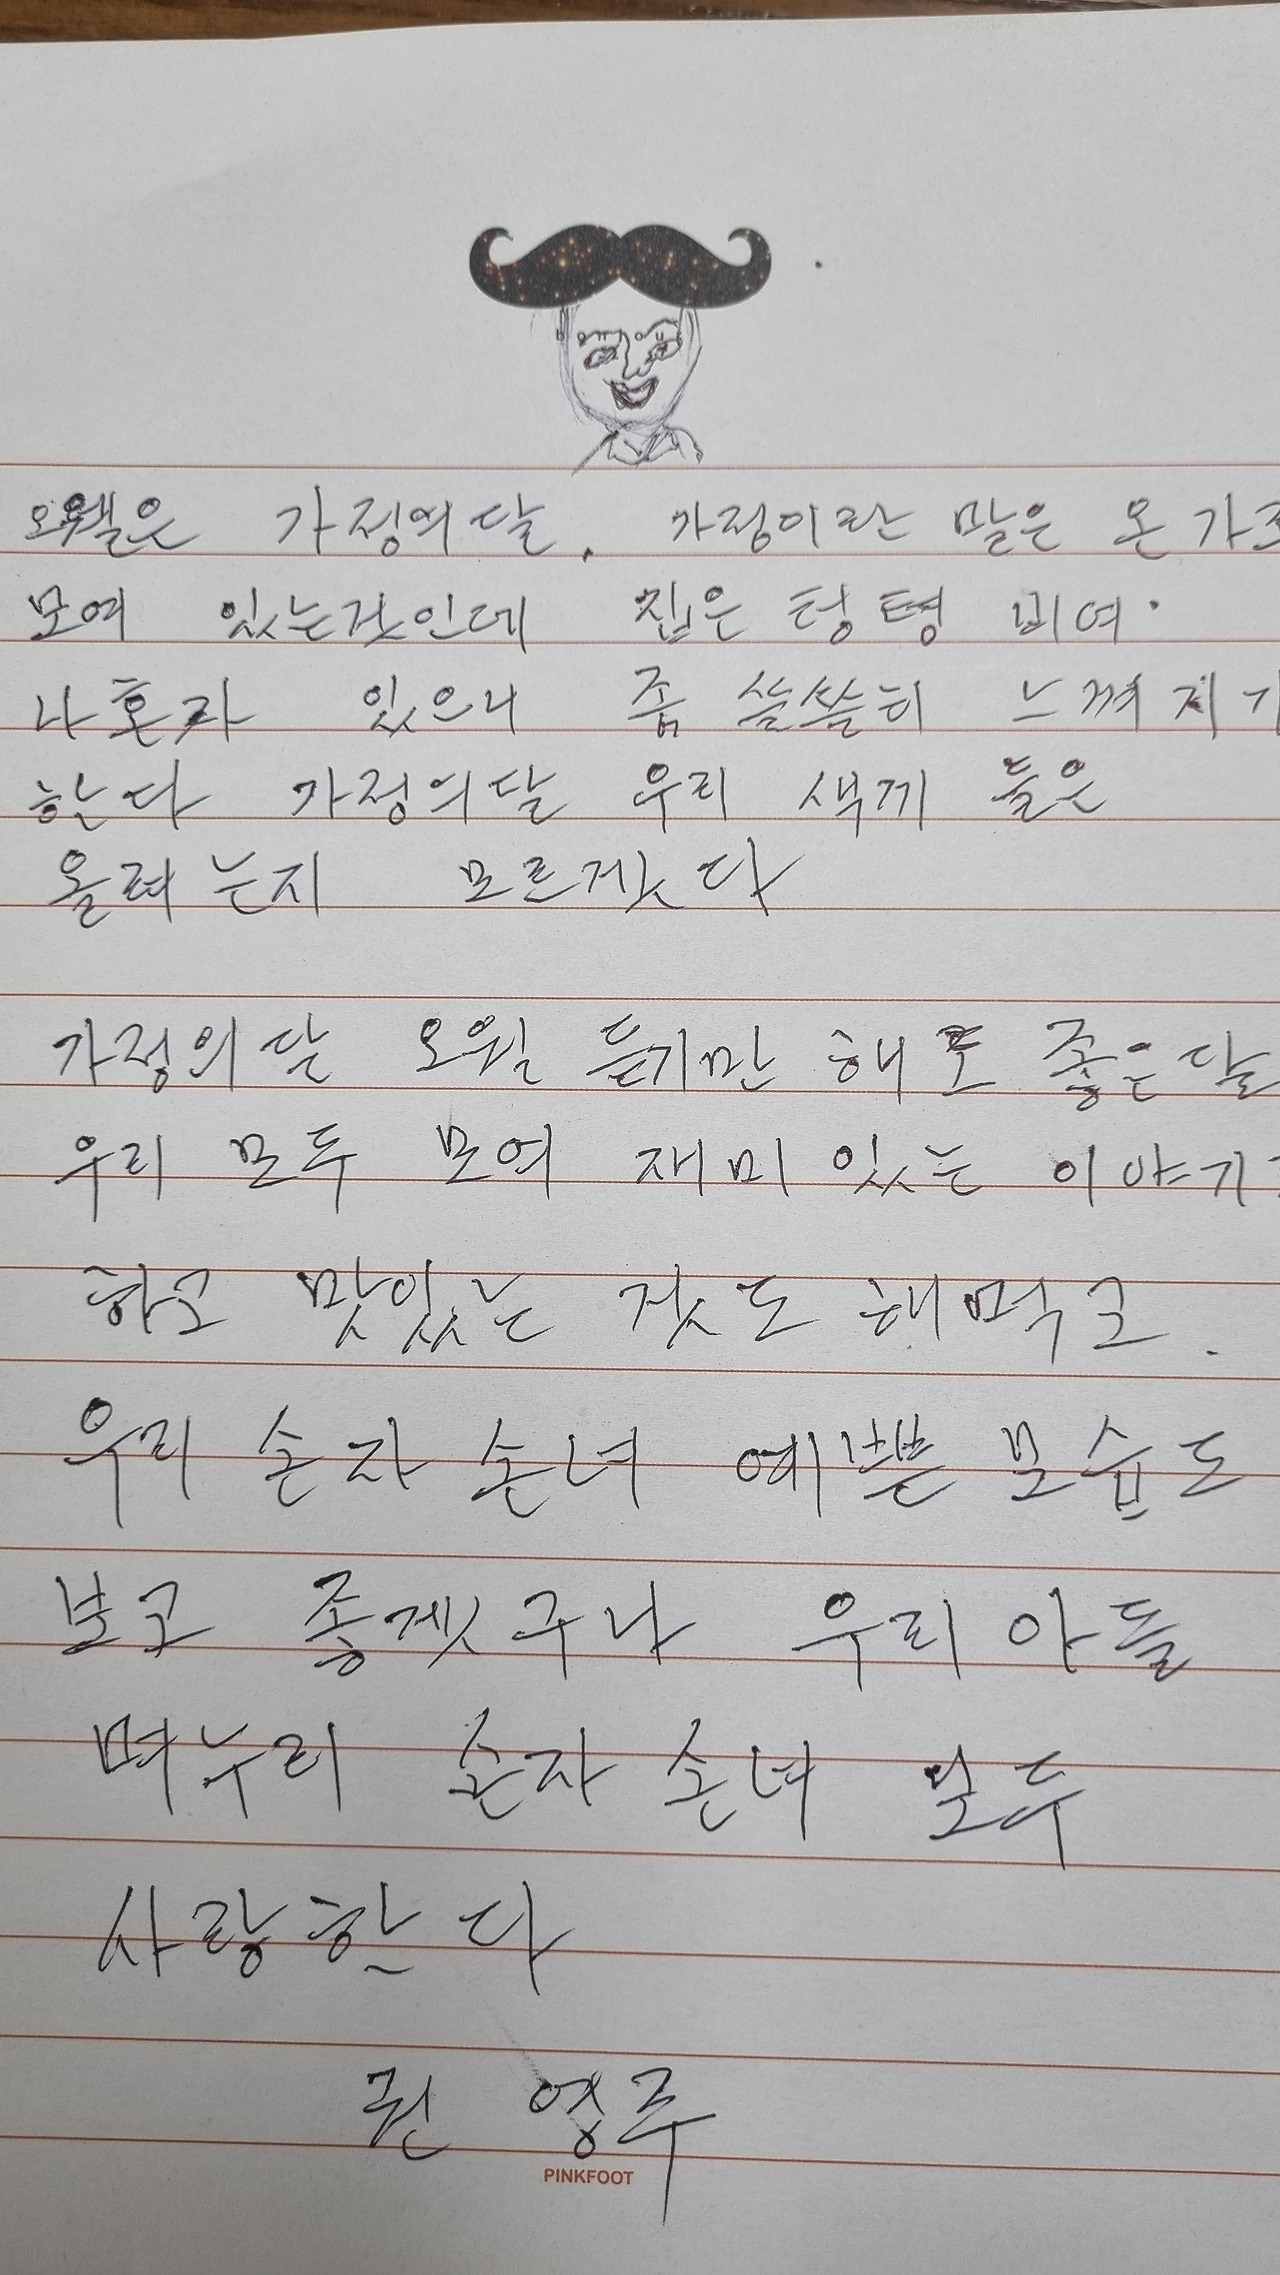 오월은 가정의달. 가정이란 말은 온 가조
모여 있는것인데 집은 텅텅 비여.
나 혼자 있으니 좀 쓸쓸히 느껴지기
한다 가정의달 우리 색끼 들은
올려는지 모르겟다
가정의달 오월 듣기만 해도 좋은달
우리 모두 모여 재미 있는 이야기
하고 맛있는 것도 해먹고.
우리 손자 손녀 예쁜 모습도
보고 좋겟구나 우리 아들
며누리 손자 손녀 모두
사랑한다
권 영주
PINKFOOT